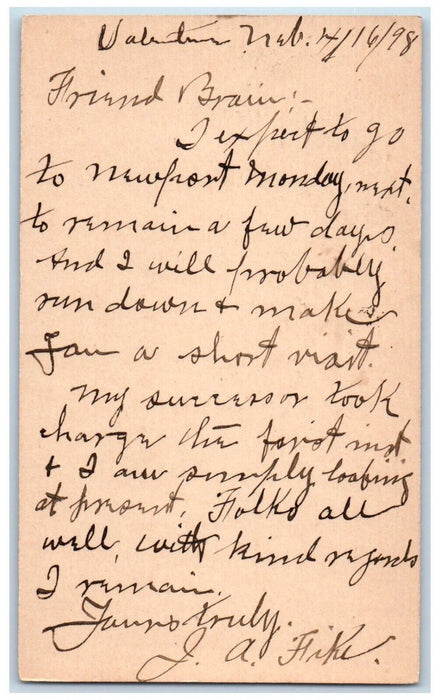 Valentine Neb. 4/16/98
Friend Brain:-
I expect to go
to Newport Monday, next,
to remain a few days.
And I will probably
run down & make
you a short visit.
My successor took
charge the first inst
& I am simply loafing
at present. Folks all
well, with kind regards
I remain.
Yours truly.
J. A. Fike.